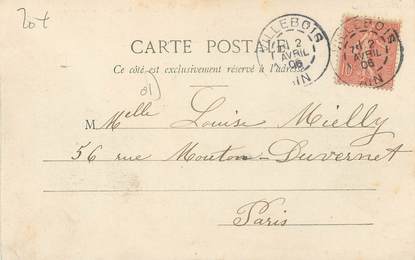 20+
CARTE POSTALE
VILLEBOIS
2
AVRIL
06
AIN
VILLEBOIS
2
AVRIL
06
AIN
10
Ce côté est exclusivement réservé à l'adresse
01
Melle Louise Mielly
56 rue Mouton-Duvernet
Paris